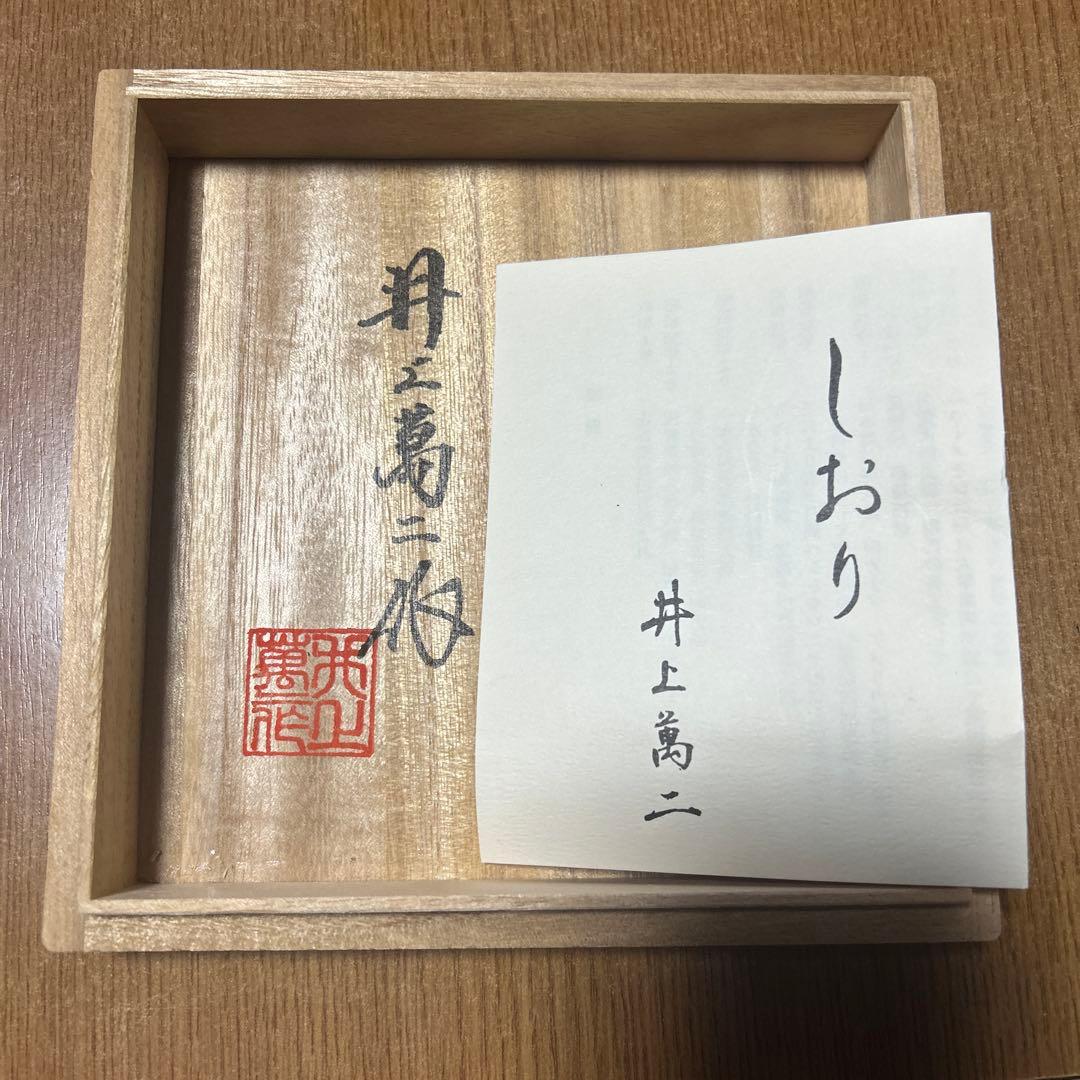 しおり
井上萬二
井上萬二作
井上
萬二作